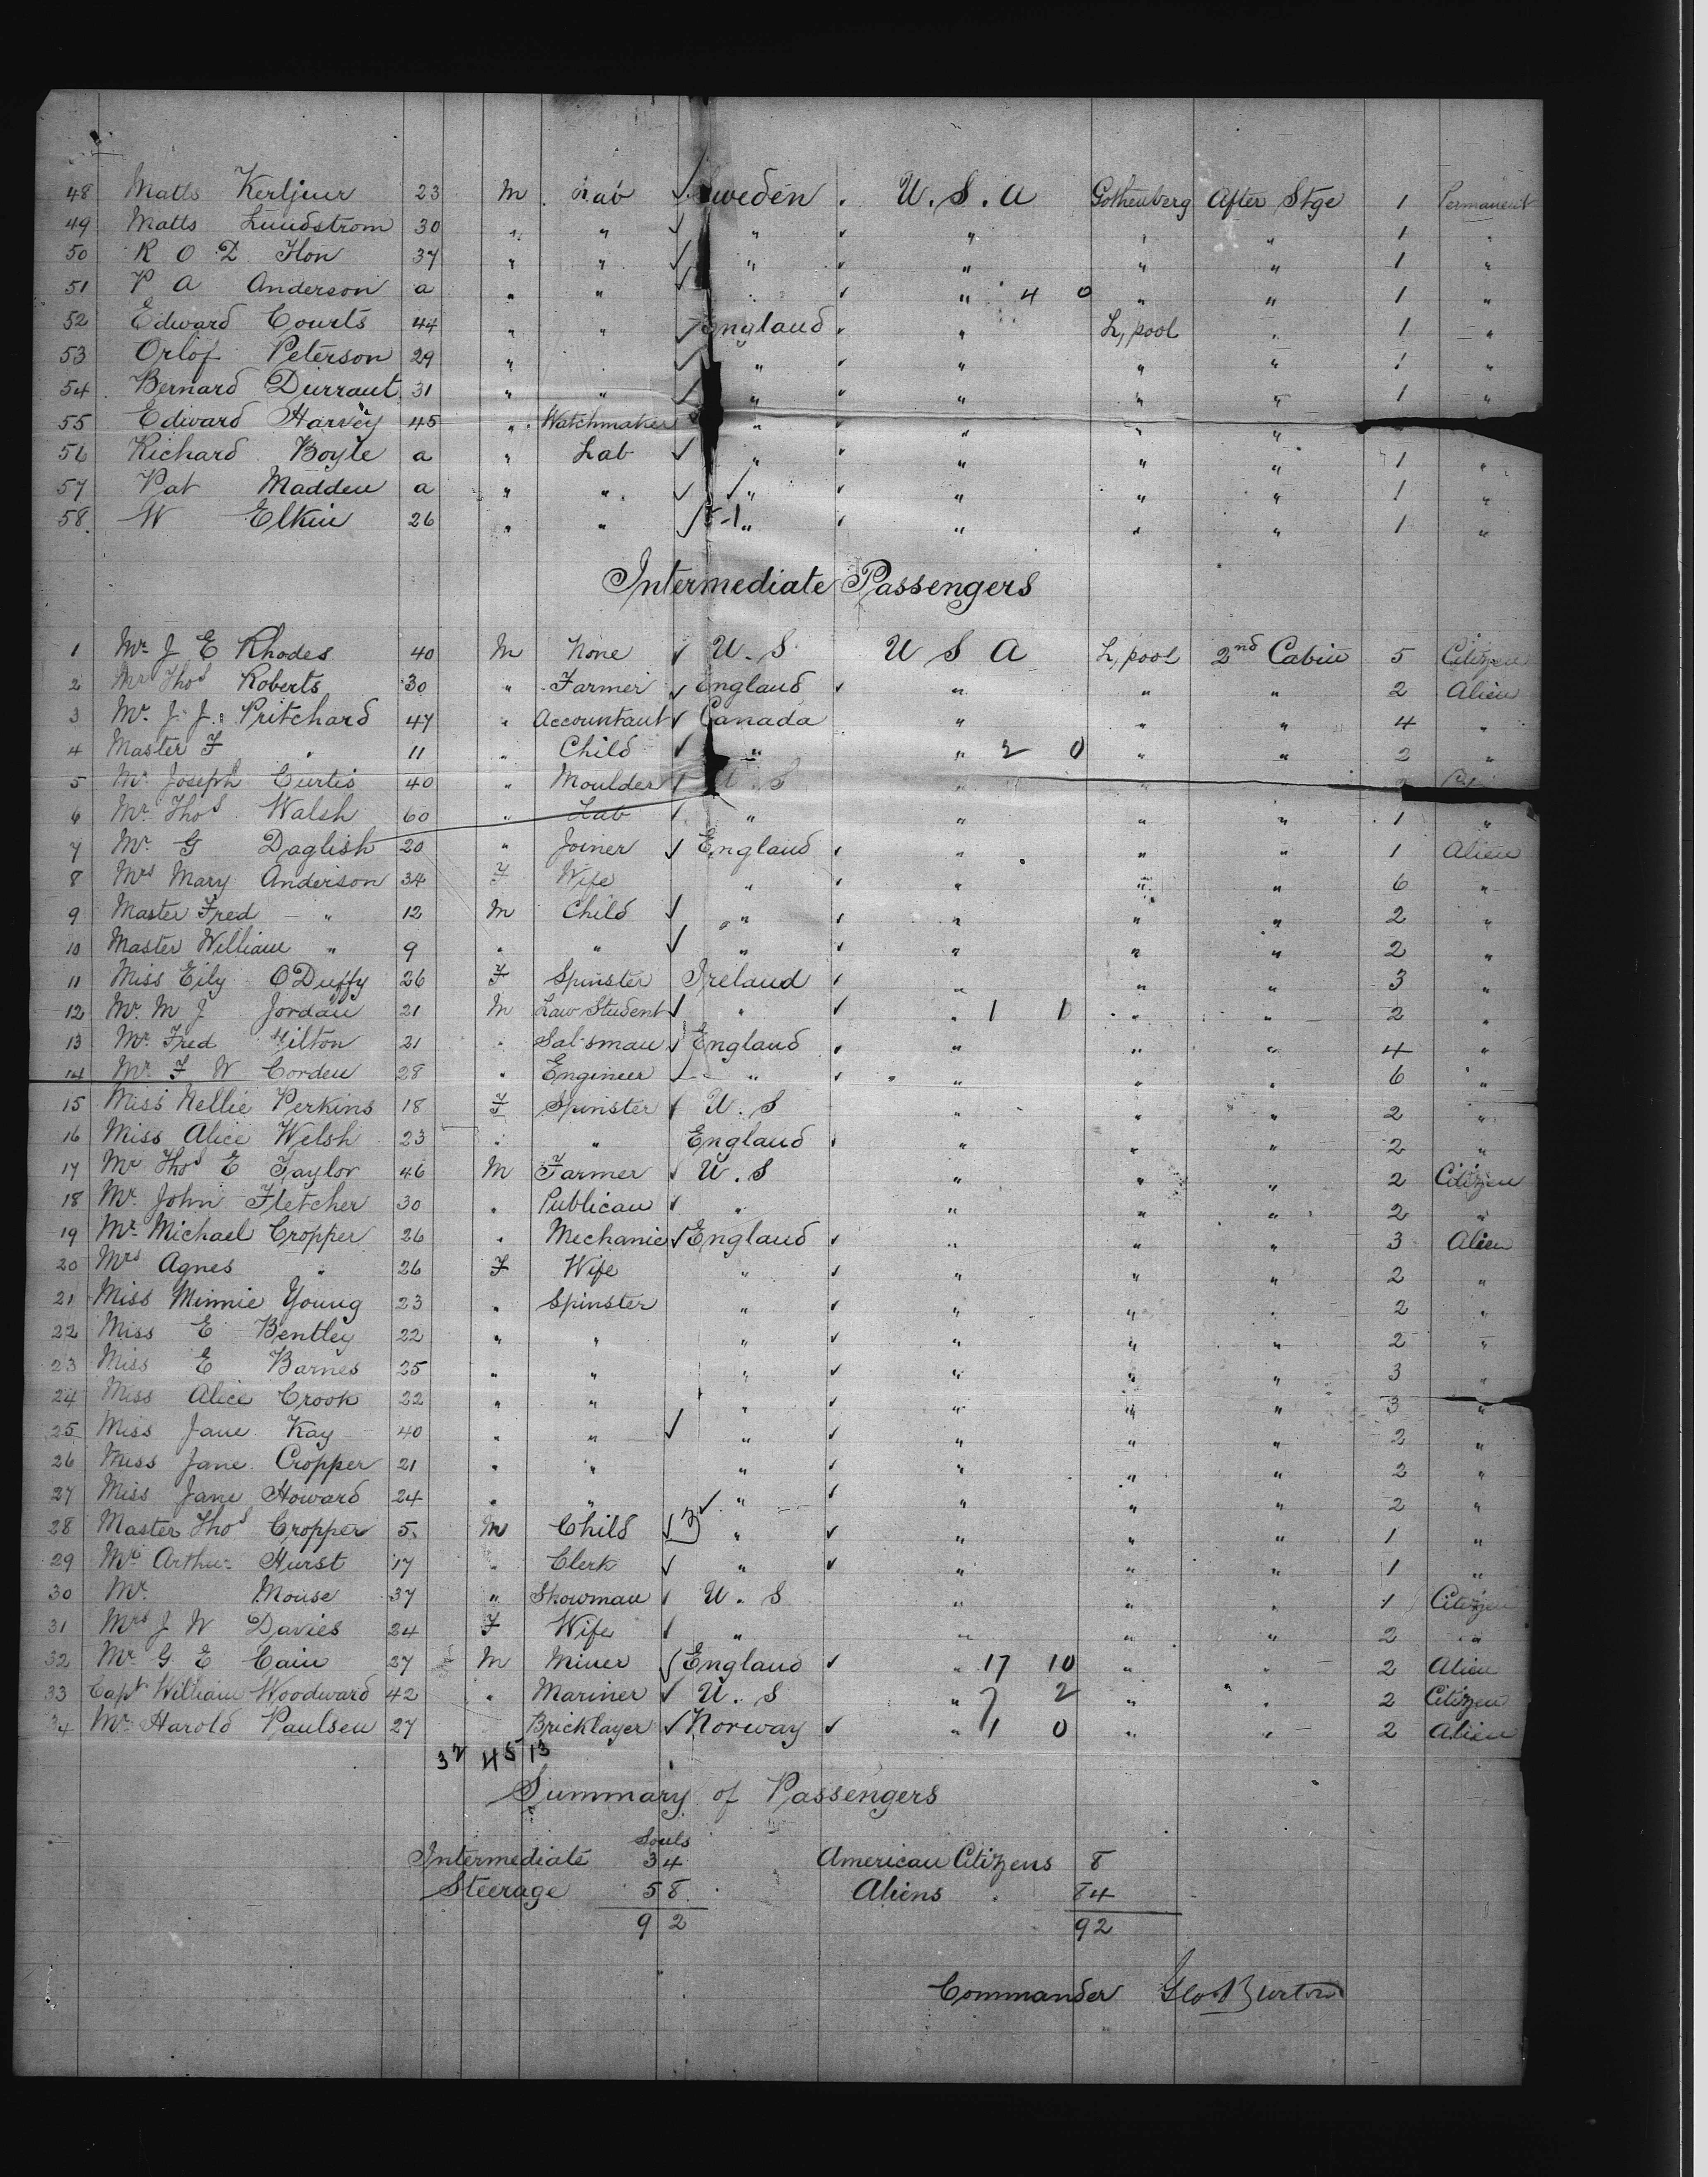 48 Matts Kerljeur 23 m Lab ✓ Sweden . U. S. A Gothenberg After Stge 1 Permanent
49 Matts Lundstrom 30 " " ✓ " ✓ " " " 1 "
50 R O D Flon 37 " " ✓ " ✓ " " " 1 "
51 P A Anderson a " " ✓ " ✓ " 4 0 " " 1 "
52 Edward Courts 44 " " ✓ England ✓ " L,pool " 1 "
53 Orlof Peterson 29 " " ✓ " ✓ " " " 1 "
54 Bernard Durraut 31 " " ✓ " ✓ " " " 1 "
55 Edward Harvey 45 " Watchmaker ✓ " ✓ " " "
56 Richard Boyle a " Lab ✓ " ✓ " " " 1 "
57 Pat Madden a " " ✓ ✓ " ✓ " " " 1 "
58. W Elkin 26 " " ✓ " ✓ " " " 1 "
Intermediate Passengers
1 Mr. J E Rhodes 40 m None ✓ U. S. U S A L,pool 2nd Cabin 5 Citizen
2 Mr Thos Roberts 30 " Farmer ✓ England ✓ " " " 2 Alien
3 Mr. J. J. Pritchard 47 " Accountant ✓ Canada " " " 4 "
4 Master F " 11 " Child ✓ " " 2 0 " " 2 "
5 Mr. Joseph Curtis 40 " Moulder ✓ U. S " " "
6 Mr. Thos. Walsh 60 " Lab ✓ " " " " 1 "
7 Mr. G Daglish 20 " Joiner ✓ England ✓ " " " 1 Alien
8 Mrs Mary Anderson 34 F Wife " ✓ " " " 6 "
9 Master Fred " 12 m Child ✓ " ✓ " " " 2 "
10 Master William " 9 " " ✓ " ✓ " " " 2 "
11 Miss Eily O'Duffy 26 F Spinster Ireland ✓ " " " 3 "
12 Mr. M J Jordan 21 m Law Student ✓ " ✓ " 1 1 " " 2 "
13 Mr. Fred Hilton 21 " Salesman ✓ England ✓ " " " 4 "
14 Mr. F W Corden 28 " Engineer ✓ " ✓ " " " 6 "
15 Miss Nellie Perkins 18 F Spinster ✓ U. S " " " 2 "
16 Miss Alice Welsh 23 " " England ✓ " " " 2 "
17 Mr Thos E Taylor 46 m Farmer ✓ U. S " " " 2 Citizen
18 Mr. John Fletcher 30 " Publican ✓ " " " " 2 "
19 Mr. Michael Cropper 26 " Mechanic ✓ England ✓ " " " 3 Alien
20 Mrs Agnes " 26 F Wife " ✓ " " " 2 "
21 Miss Minnie Young 23 " Spinster " ✓ " " " 2 "
22 Miss E Bentley 22 " " " ✓ " " " 2 "
23 Miss E Barnes 25 " " " ✓ " " " 3 "
24 Miss Alice Crook 22 " " " ✓ " " " 3 "
25 Miss Jane Kay 40 " " ✓ " ✓ " " " 2 "
26 Miss Jane Cropper 21 " " " ✓ " " " 2 "
27 Miss Jane Howard 24 " " ✓ " ✓ " " " 2 "
28 Master Thos Cropper 5 m Child ✓ " ✓ " " " 1 "
29 Mr. Arthur Hurst 17 " Clerk ✓ " ✓ " " " 1 "
30 Mr. Mouse 37 " Showman ✓ U. S " " " 1 Citizen
31 Mrs J W Davies 24 F Wife ✓ " " " " 2 "
32 Mr. G E Cain 27 m Miner ✓ England ✓ " 17 10 " " 2 Alien
33 Capt William Woodward 42 " Mariner ✓ U. S " 7 2 " " 2 Citizen
34 Mr. Harold Paulsen 27 Bricklayer ✓ Norway ✓ " 1 0 " " 2 Alien
32 45 13
Summary of Passengers
Souls
Intermediate 34 American Citizens 8
Steerage 58 Aliens 84
92 92
Commander Geo Burton